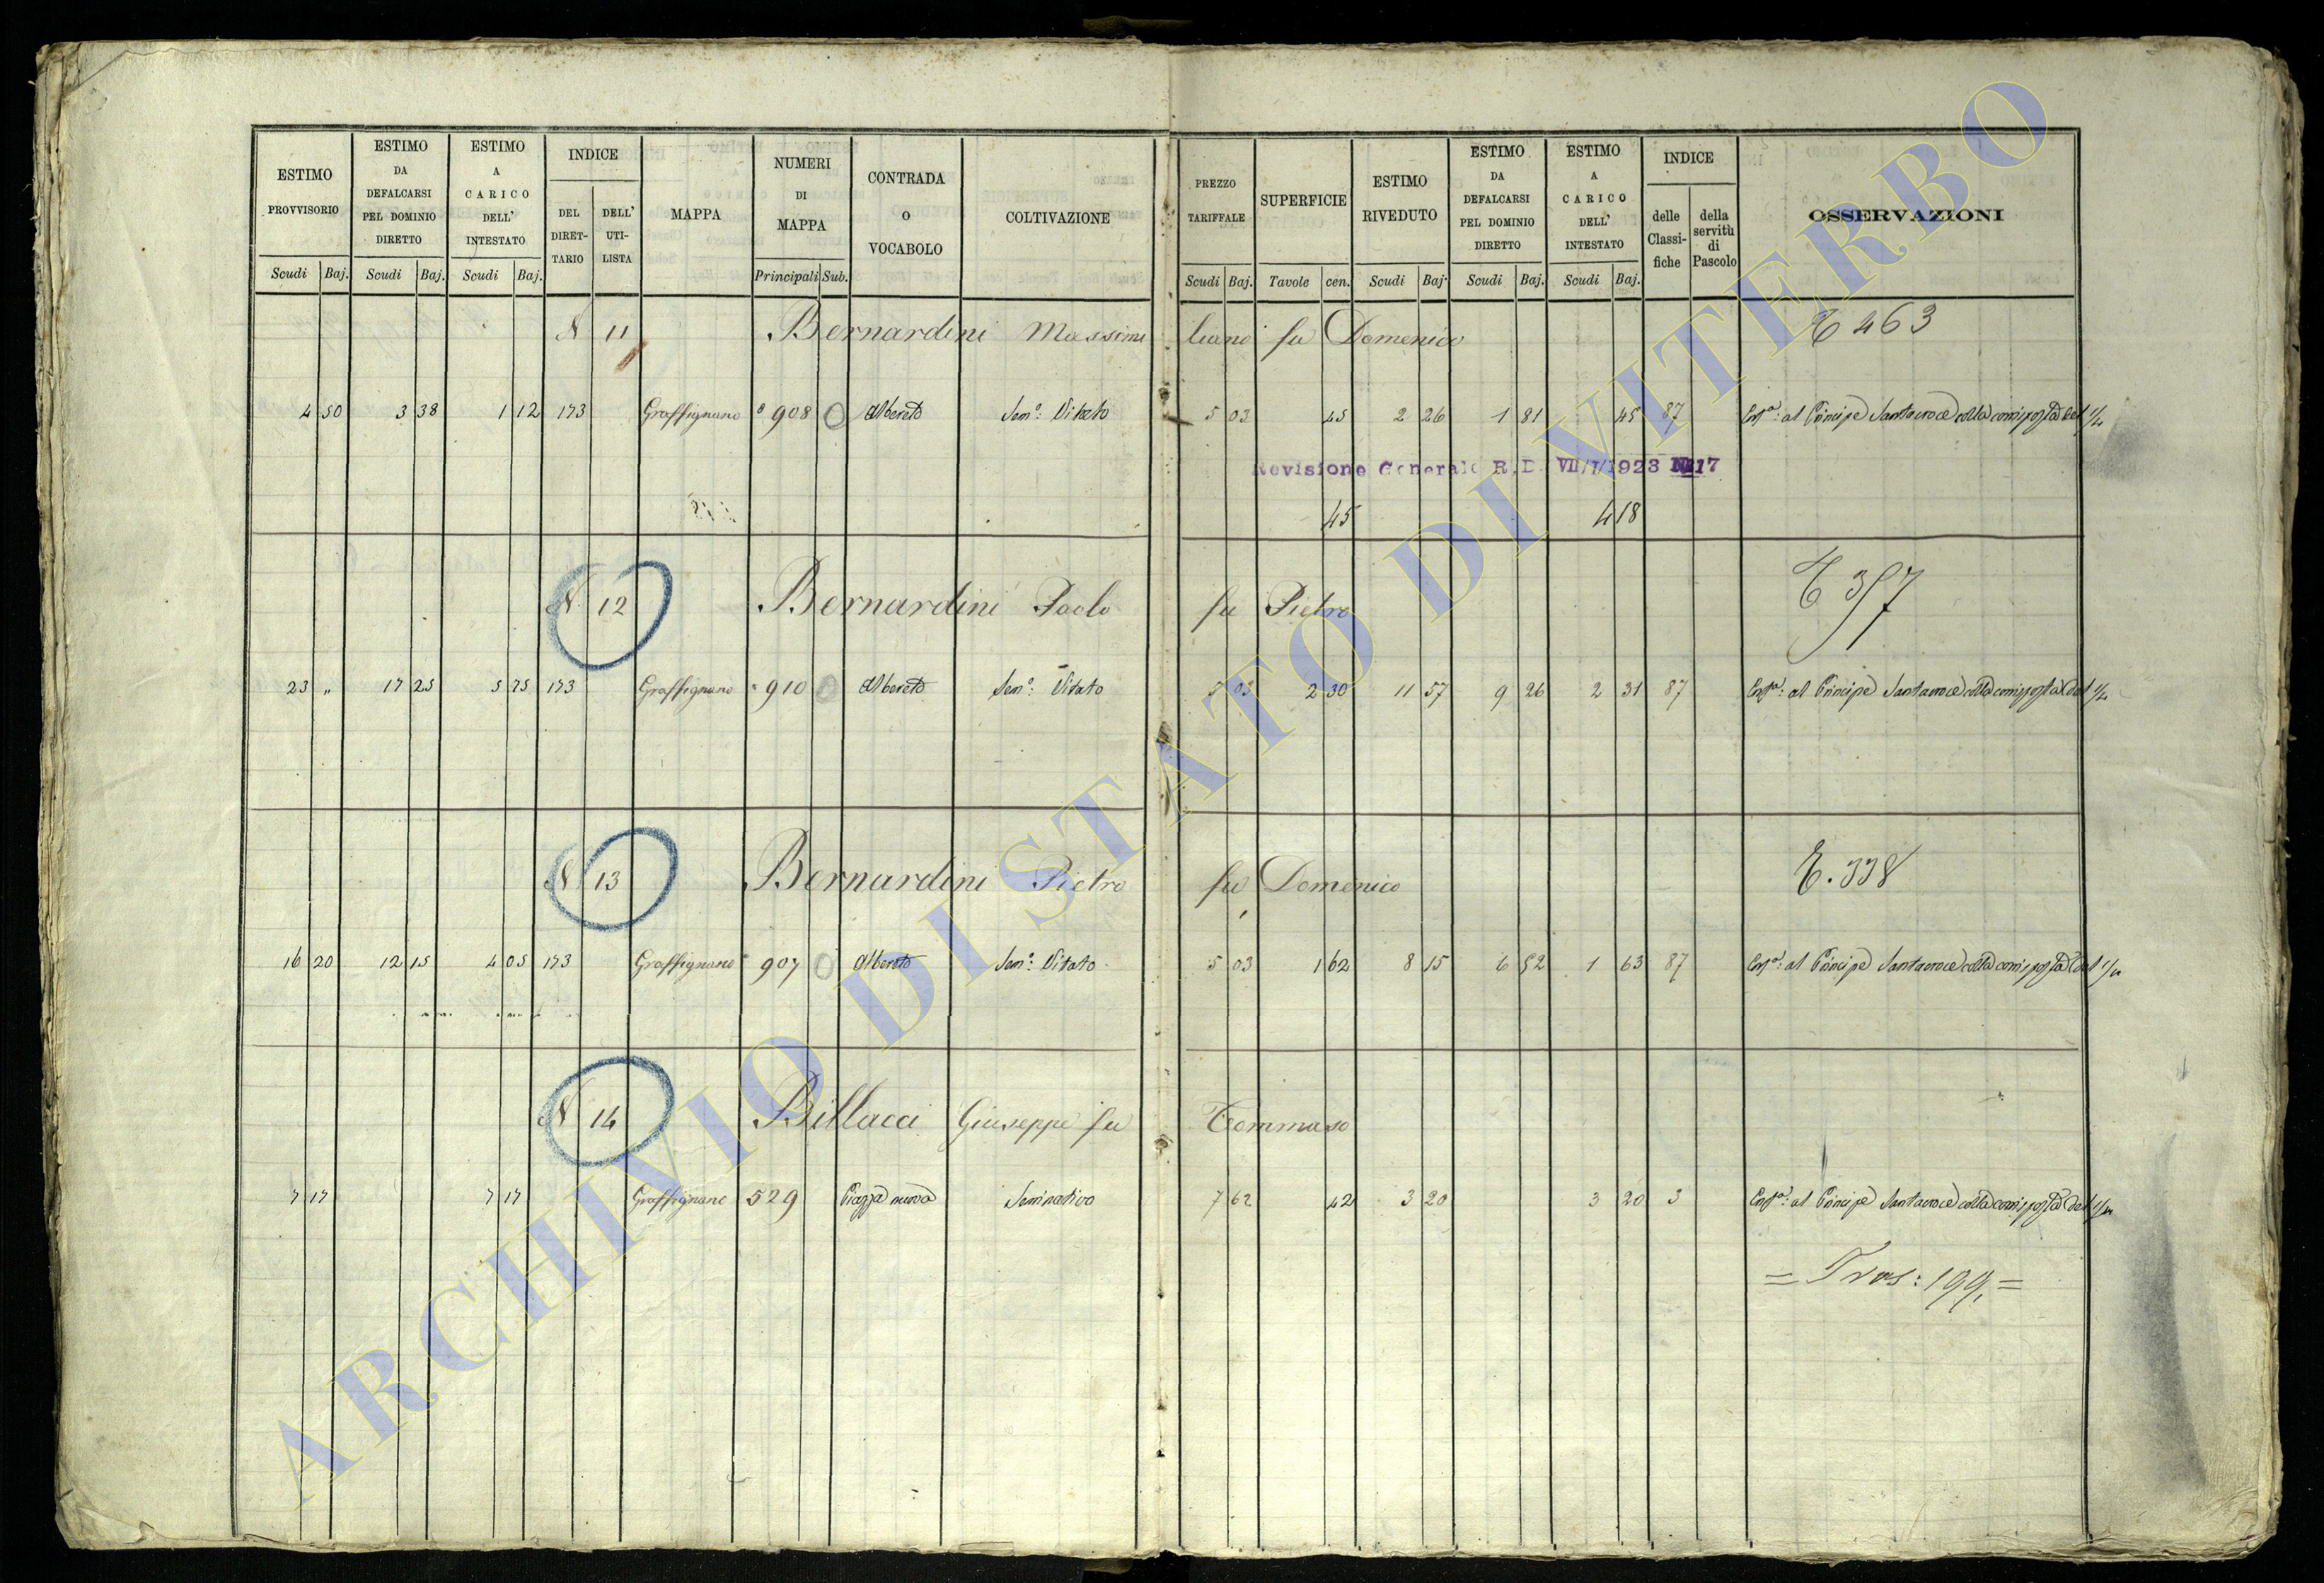 ESTIMO PROVVISORIO | ESTIMO DA DEFALCARSI PEL DOMINIO DIRETTO | ESTIMO A CARICO DELL' INTESTATO | INDICE DEL DIRET-TARIO | DELL' UTI-LISTA | MAPPA | NUMERI DI MAPPA | CONTRADA O VOCABOLO | COLTIVAZIONE | PREZZO TARIFFALE | SUPERFICIE | ESTIMO RIVEDUTO | ESTIMO DA DEFALCARSI PEL DOMINIO DIRETTO | ESTIMO A CARICO DELL' INTESTATO | INDICE delle Classi-fiche | della servitù di Pascolo | OSSERVAZIONI
Scudi | Baj. | Scudi | Baj. | Scudi | Baj. | Principali | Sub. | Scudi | Baj. | Tavole | cen. | Scudi | Baj. | Scudi | Baj. | Scudi | Baj.
N 11 Bernardini Massimiliano fu Domenico 463
4 50 3 38 1 12 173 Graffignano 908 0 Albereto Sem.º Vitato 5 03 45 2 26 1 81 45 87 Enf.ª al Principe Santacroce colla corrisposta del 1/4
Revisione Generale R.D. VII/I/1923 N 17
45 4 18
N 12 Bernardini Paolo fu Pietro
23 " 17 25 5 75 173 Graffignano 910 0 Albereto Sem.º Vitato 5 03 2 30 11 57 9 26 2 31 87 Enf.ª al Principe Santacroce colla corrisposta del 1/4
N 13 Bernardini Pietro fu Domenico 338
16 20 12 15 4 05 173 Graffignano 907 0 Albereto Sem.º Vitato 5 03 1 62 8 15 6 52 1 63 87 Enf.ª al Principe Santacroce colla corrisposta del 1/4
N 14 Billacci Giuseppe fu Tommaso
7 17 7 17 Graffignano 529 Piazza nuova Seminativo 7 62 42 3 20 3 20 3 Enf.ª al Principe Santacroce colla corrisposta del 1/4
= Tras: 199. =
ARCHIVIO DI STATO DI VITERBO